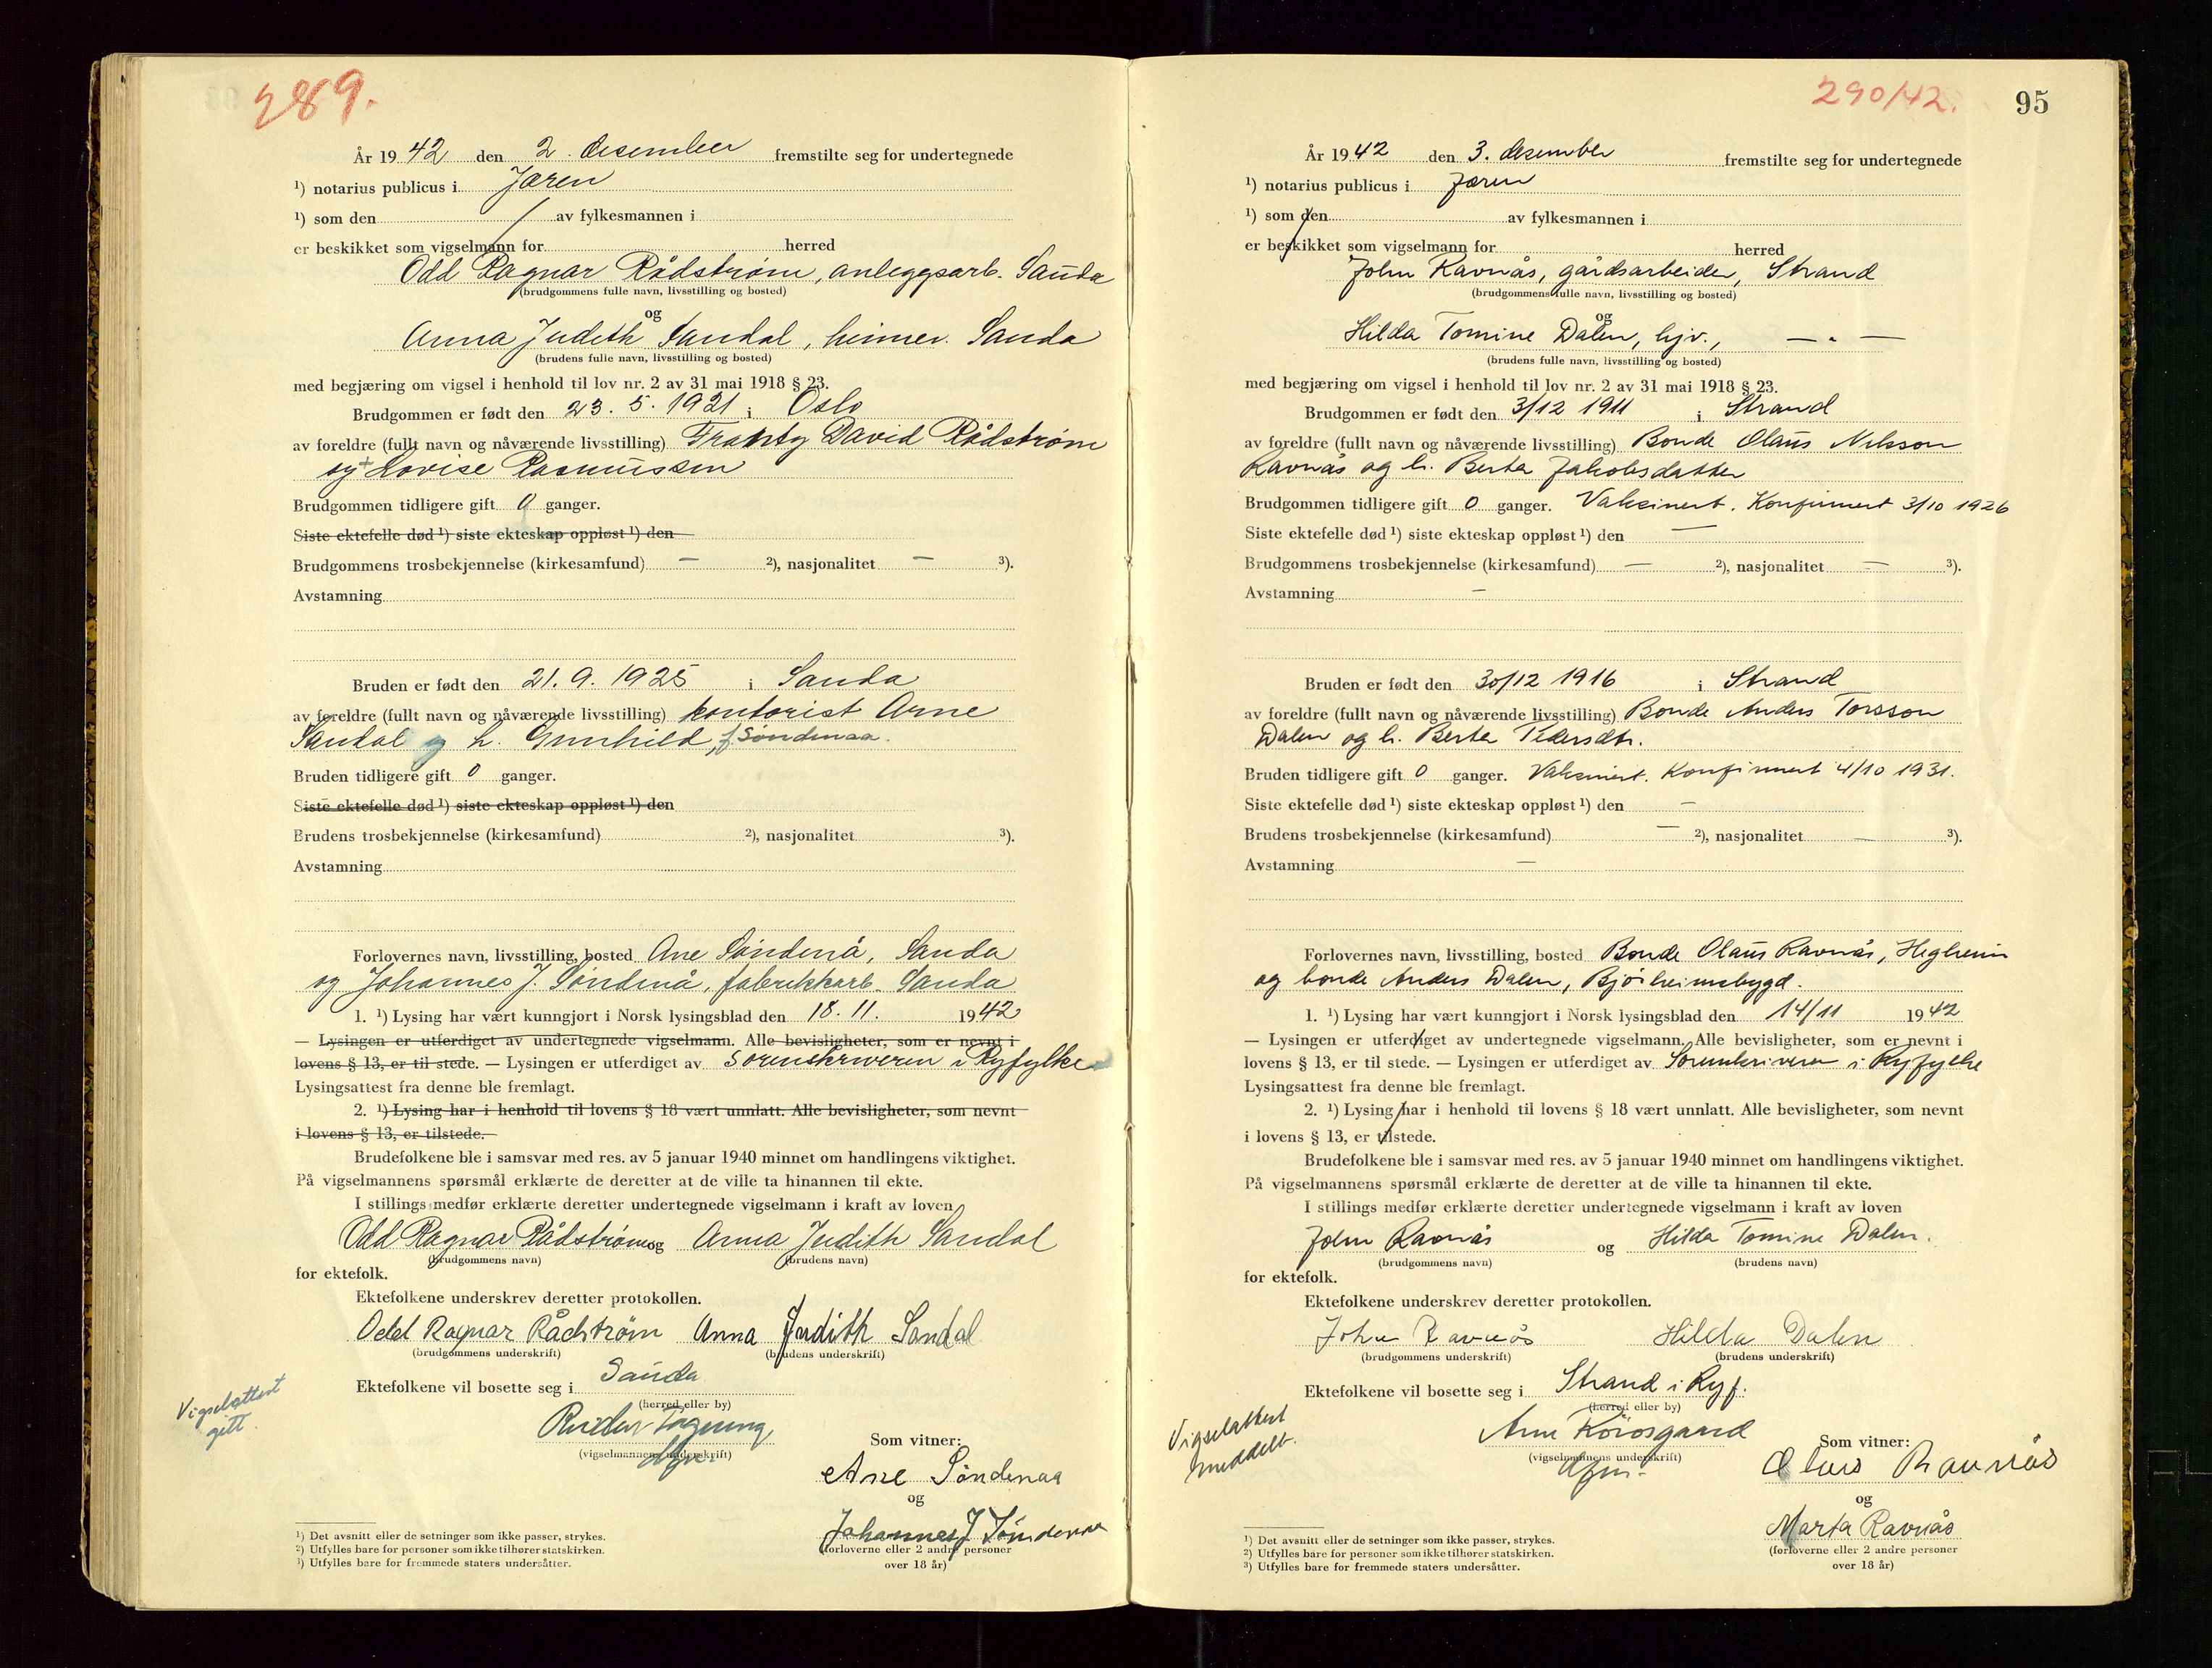 289.
År 1942 den 2. desember fremstilte seg for undertegnede
¹) notarius publicus i Jæren
¹) som den av fylkesmannen i
er beskikket som vigselmann for herred
Odd Ragnar Rådstrøm, anleggsarb. Sauda
(brudgommens fulle navn, livsstilling og bosted)
og
Anna Judith Sandal, heimev. Sauda
(brudens fulle navn, livsstilling og bosted)
med begjæring om vigsel i henhold til lov nr. 2 av 31 mai 1918 § 23.
Brudgommen er født den 23. 5. 1921 i Oslo
av foreldre (fullt navn og nåværende livsstilling) David Rådstrøm
og + Lovise Rasmussen
Brudgommen tidligere gift 0 ganger.
Siste ektefelle død ¹) siste ekteskap oppløst ¹) den
Brudgommens trosbekjennelse (kirkesamfund) — ²), nasjonalitet — ³).
Avstamning
Bruden er født den 21. 9. 1925 i Sauda
av foreldre (fullt navn og nåværende livsstilling) kontorist Arne
Sandal og h. Gunhild, f. Søndenaa.
Bruden tidligere gift 0 ganger.
Siste ektefelle død ¹) siste ekteskap oppløst ¹) den
Brudens trosbekjennelse (kirkesamfund) ²), nasjonalitet ³).
Avstamning
Forlovernes navn, livsstilling, bosted Ane Søndenå, Sauda
og Johannes J. Søndenå, fabrikkarb. Sauda
1. ¹) Lysing har vært kunngjort i Norsk lysingsblad den 18. 11. 1942
— Lysingen er utferdiget av undertegnede vigselmann. Alle bevisligheter, som er nevnt i
lovens § 13, er til stede. — Lysingen er utferdiget av Sorenskriveren i Ryfylke
Lysingsattest fra denne ble fremlagt.
2. ¹) Lysing har i henhold til lovens § 18 vært unnlatt. Alle bevisligheter, som nevnt
i lovens § 13, er tilstede.
Brudefolkene ble i samsvar med res. av 5 januar 1940 minnet om handlingens viktighet.
På vigselmannens spørsmål erklærte de deretter at de ville ta hinannen til ekte.
I stillings medfør erklærte deretter undertegnede vigselmann i kraft av loven
Odd Ragnar Rådstrøm og Anna Judith Sandal
(brudgommens navn) (brudens navn)
for ektefolk.
Ektefolkene underskrev deretter protokollen.
Odd Ragnar Rådstrøm Anna Judith Sandal
(brudgommens underskrift) (brudens underskrift)
Ektefolkene vil bosette seg i Sauda
(herred eller by)
Vigselattest
gitt.
(vigselmannens underskrift)
Som vitner:
Ane Søndenaa
og
Johannes J Søndenaa
(forloverne eller 2 andre personer
over 18 år)
¹) Det avsnitt eller de setninger som ikke passer, strykes.
²) Utfylles bare for personer som ikke tilhører statskirken.
³) Utfylles bare for fremmede staters undersåtter.
290/42.
95
År 1942 den 3. desember fremstilte seg for undertegnede
¹) notarius publicus i Jæren
¹) som den av fylkesmannen i
er beskikket som vigselmann for herred
John Ravnås, gårdsarbeider, Strand
(brudgommens fulle navn, livsstilling og bosted)
og
Hilda Tomine Dalen, hjv., — " —
(brudens fulle navn, livsstilling og bosted)
med begjæring om vigsel i henhold til lov nr. 2 av 31 mai 1918 § 23.
Brudgommen er født den 3/12 1911 i Strand
av foreldre (fullt navn og nåværende livsstilling) Bonde Olaus Nilsson
Ravnås og h. Berta Jakobsdatter
Brudgommen tidligere gift 0 ganger. Vaksinert. Konfirmert 3/10 1926
Siste ektefelle død ¹) siste ekteskap oppløst ¹) den —
Brudgommens trosbekjennelse (kirkesamfund) — ²), nasjonalitet — ³).
Avstamning —
Bruden er født den 30/12 1916 i Strand
av foreldre (fullt navn og nåværende livsstilling) Bonde Anders Torsson
Dalen og h. Berta Pedersdtr.
Bruden tidligere gift 0 ganger. Vaksinert. Konfirmert 4/10 1931.
Siste ektefelle død ¹) siste ekteskap oppløst ¹) den —
Brudens trosbekjennelse (kirkesamfund) — ²), nasjonalitet — ³).
Avstamning —
Forlovernes navn, livsstilling, bosted Bonde Olaus Ravnås, Hegheim
og bonde Anders Dalen, Bjørheimsbygd.
1. ¹) Lysing har vært kunngjort i Norsk lysingsblad den 14/11 1942
— Lysingen er utferdiget av undertegnede vigselmann. Alle bevisligheter, som er nevnt i
lovens § 13, er til stede. — Lysingen er utferdiget av Sorenskriveren i Ryfylke
Lysingsattest fra denne ble fremlagt.
2. ¹) Lysing har i henhold til lovens § 18 vært unnlatt. Alle bevisligheter, som nevnt
i lovens § 13, er tilstede.
Brudefolkene ble i samsvar med res. av 5 januar 1940 minnet om handlingens viktighet.
På vigselmannens spørsmål erklærte de deretter at de ville ta hinannen til ekte.
I stillings medfør erklærte deretter undertegnede vigselmann i kraft av loven
John Ravnås og Hilda Tomine Dalen.
(brudgommens navn) (brudens navn)
for ektefolk.
Ektefolkene underskrev deretter protokollen.
John Ravnås Hilda Dalen
(brudgommens underskrift) (brudens underskrift)
Ektefolkene vil bosette seg i Strand i Ryf.
(herred eller by)
Vigselattest
meddelt.
(vigselmannens underskrift)
Som vitner:
Olaus Ravnås
og
Marta Ravnås
(forloverne eller 2 andre personer
over 18 år)
¹) Det avsnitt eller de setninger som ikke passer, strykes.
²) Utfylles bare for personer som ikke tilhører statskirken.
³) Utfylles bare for fremmede staters undersåtter.